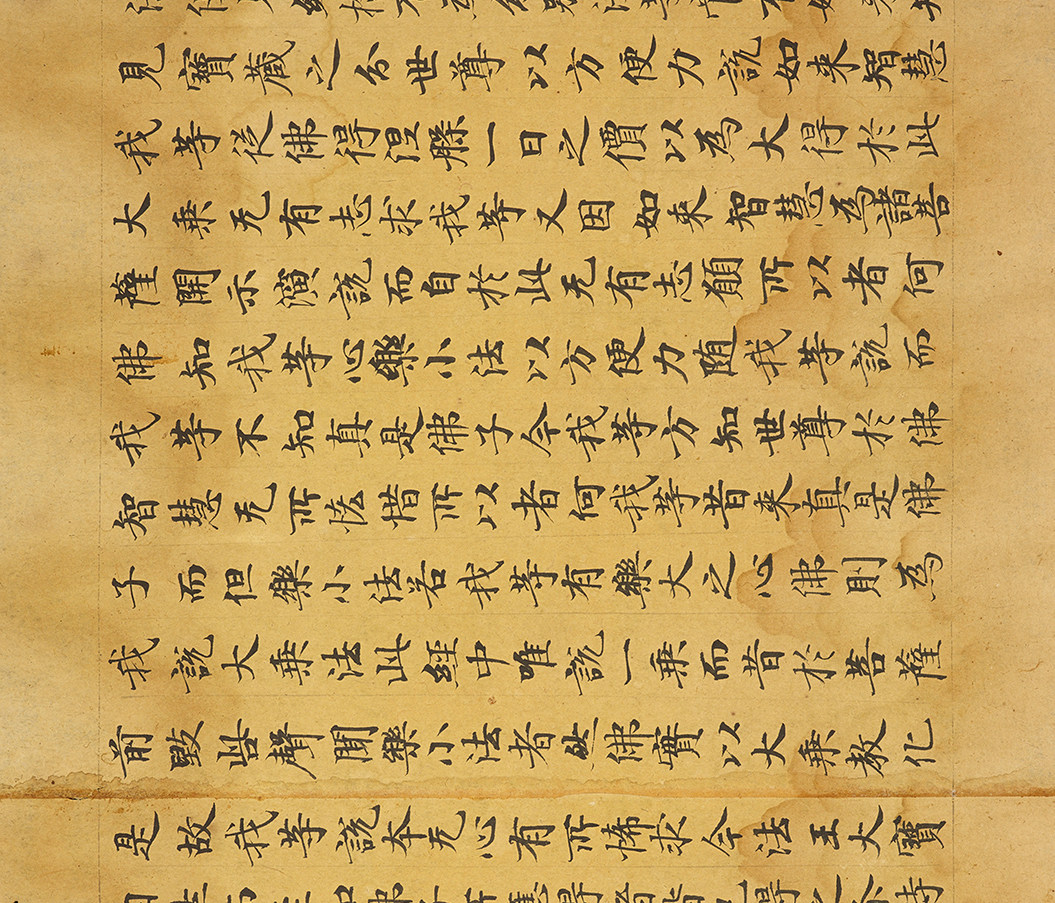 見寶藏之分世尊以方便力說如来智慧
我等從佛得涅槃一日之價以為大得於此
大乘无有志求我等又因如來智慧為諸菩
薩開示演說而自於此无有志願所以者何
佛知我等心樂小法以方便力随我等說而
我等不知真是佛子今我等方知世尊於佛
智慧无所悋惜所以者何我等昔来真是佛
子而但樂小法若我等有樂大之心佛則為
我說大乘法此經中唯說一乘而昔於菩薩
前毀呰聲聞樂小法者然佛實以大乘教化
是故我等說本无心有所悕求今法王大寶